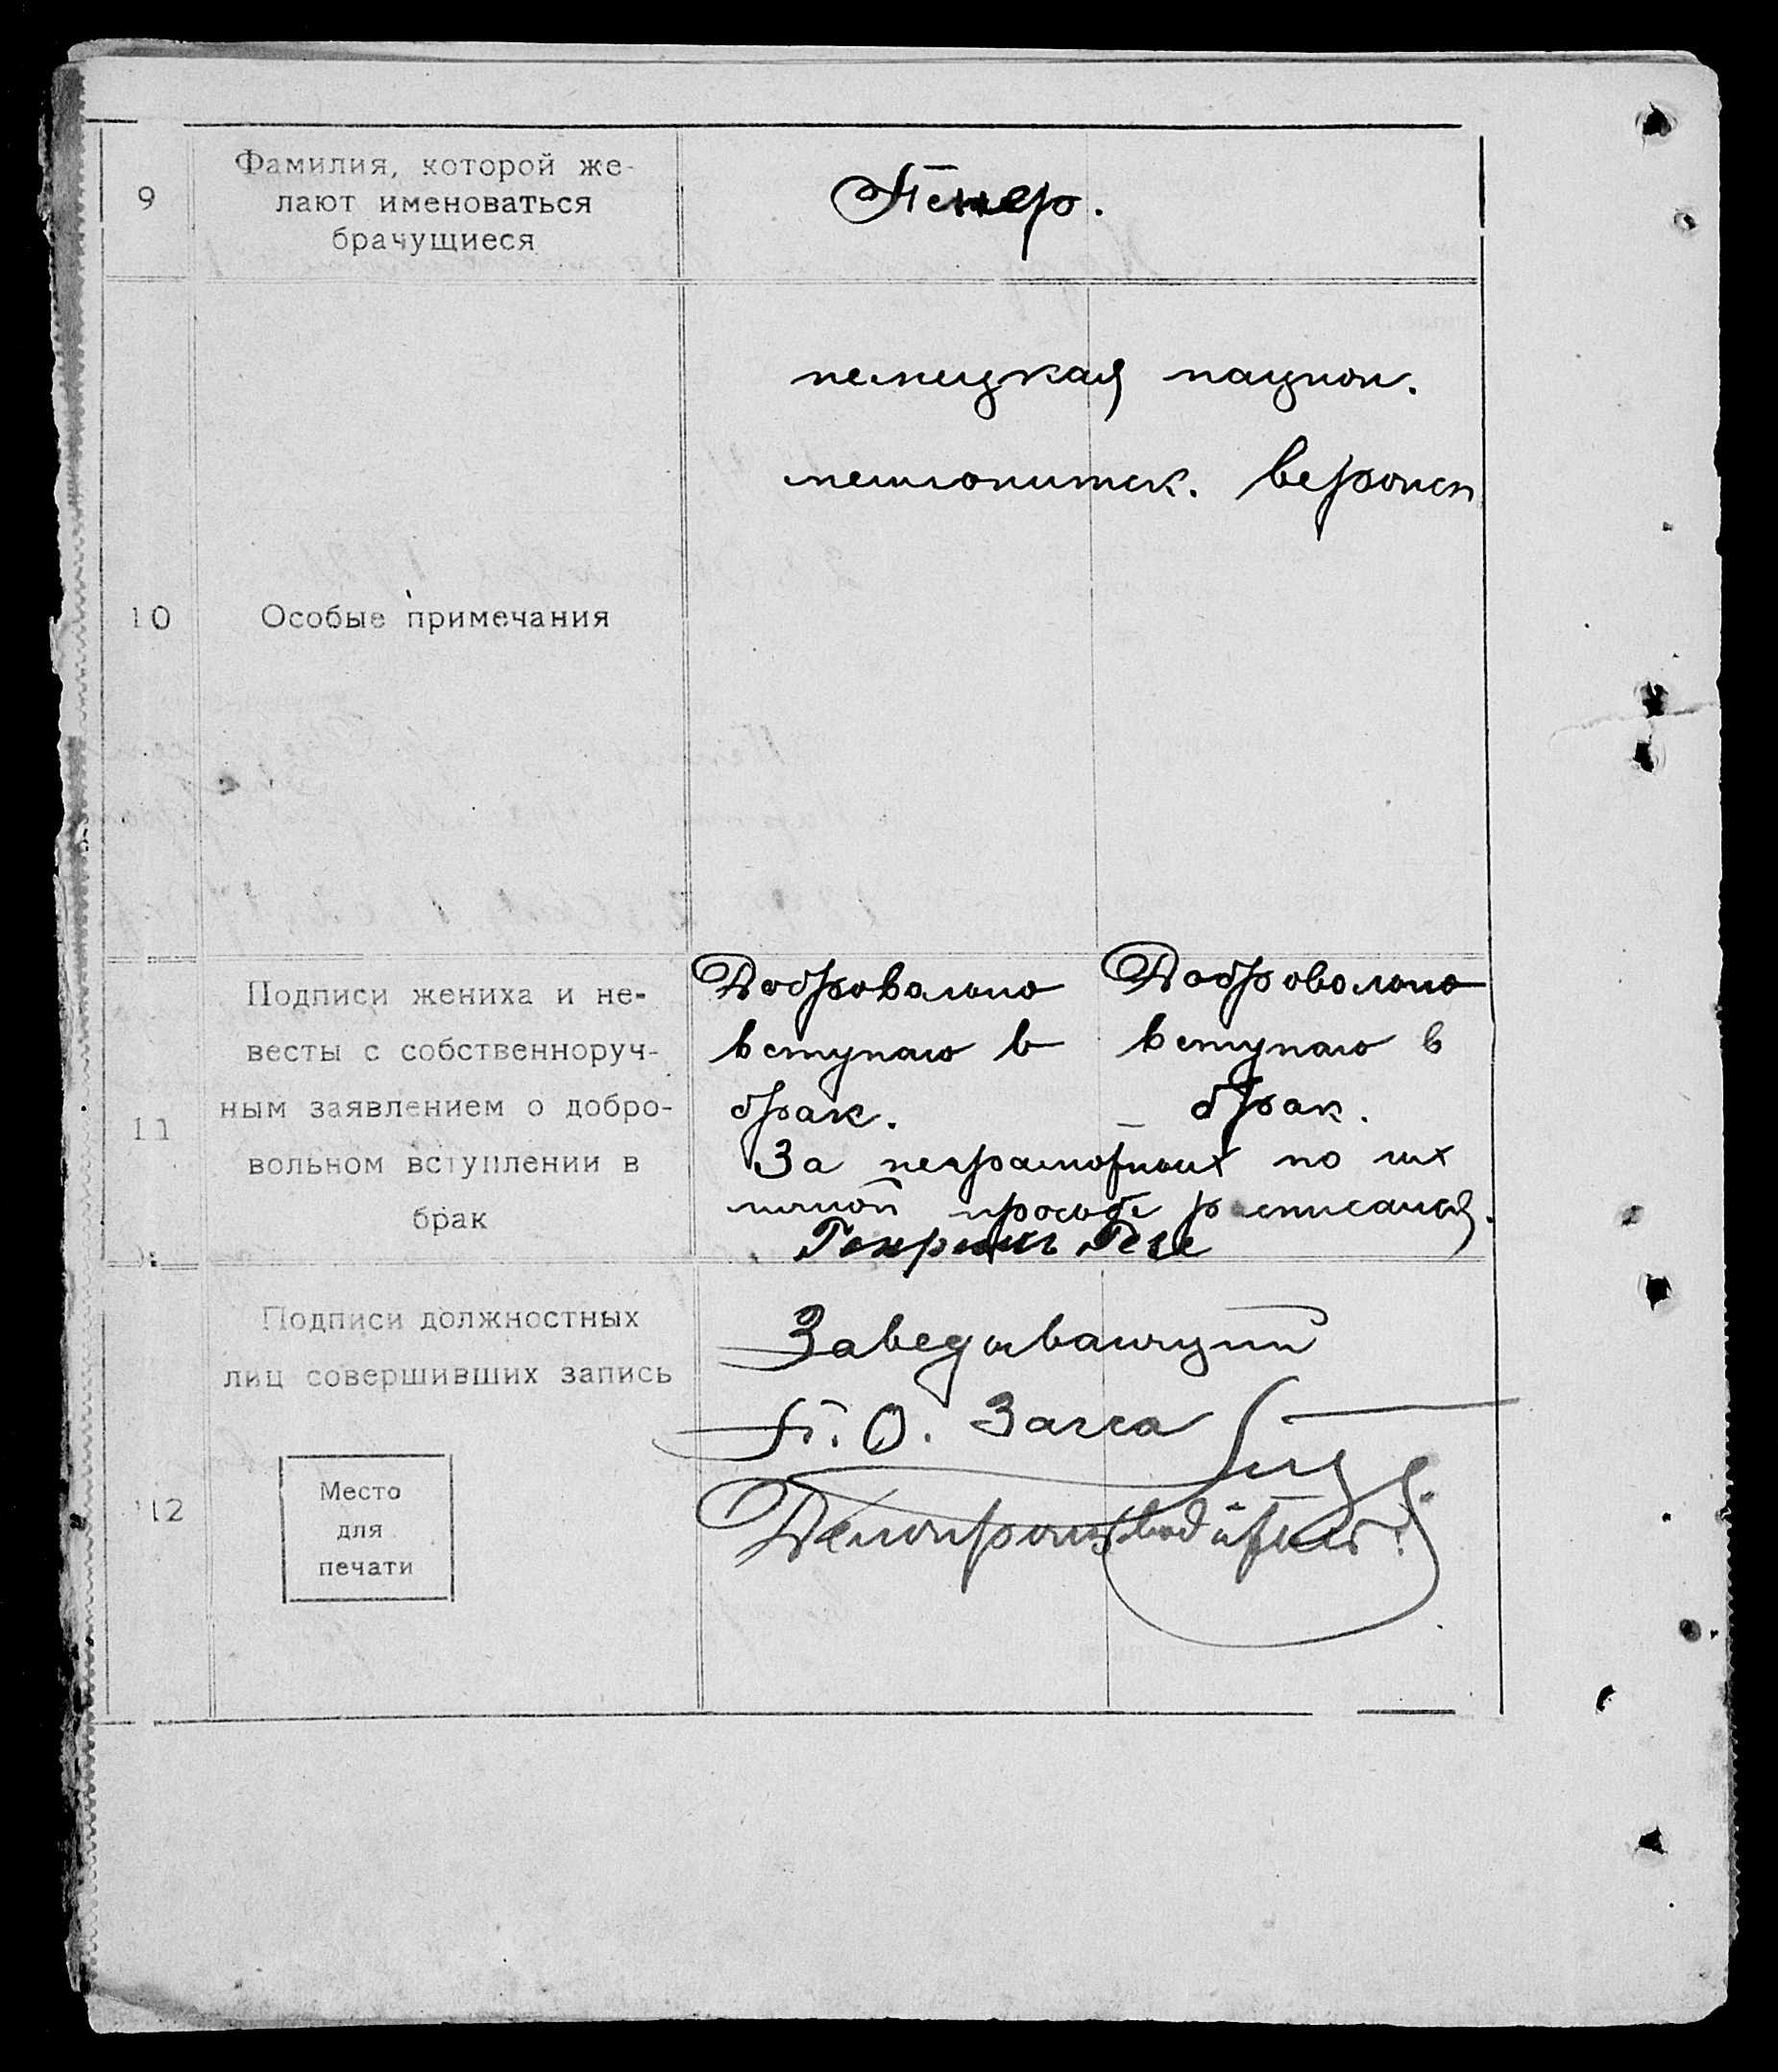 9
Фамилия, которой же-
лают именоваться
брачущиеся
Пенер.
10
Особые примечания
немецкая национ.
меннонитск. вероисп
11
Подписи жениха и не-
весты с собственноруч-
ным заявлением о добро-
вольном вступлении в
брак
Добровольно
вступаю в
брак.
Добровольно
вступаю в
брак.
За неграмотных по их
личной просьбе расписался.
Генрих
12
Подписи должностных
лиц совершивших запись
Место
для
печати
Заведывающий
П. О. Загса
Делопроизводитель